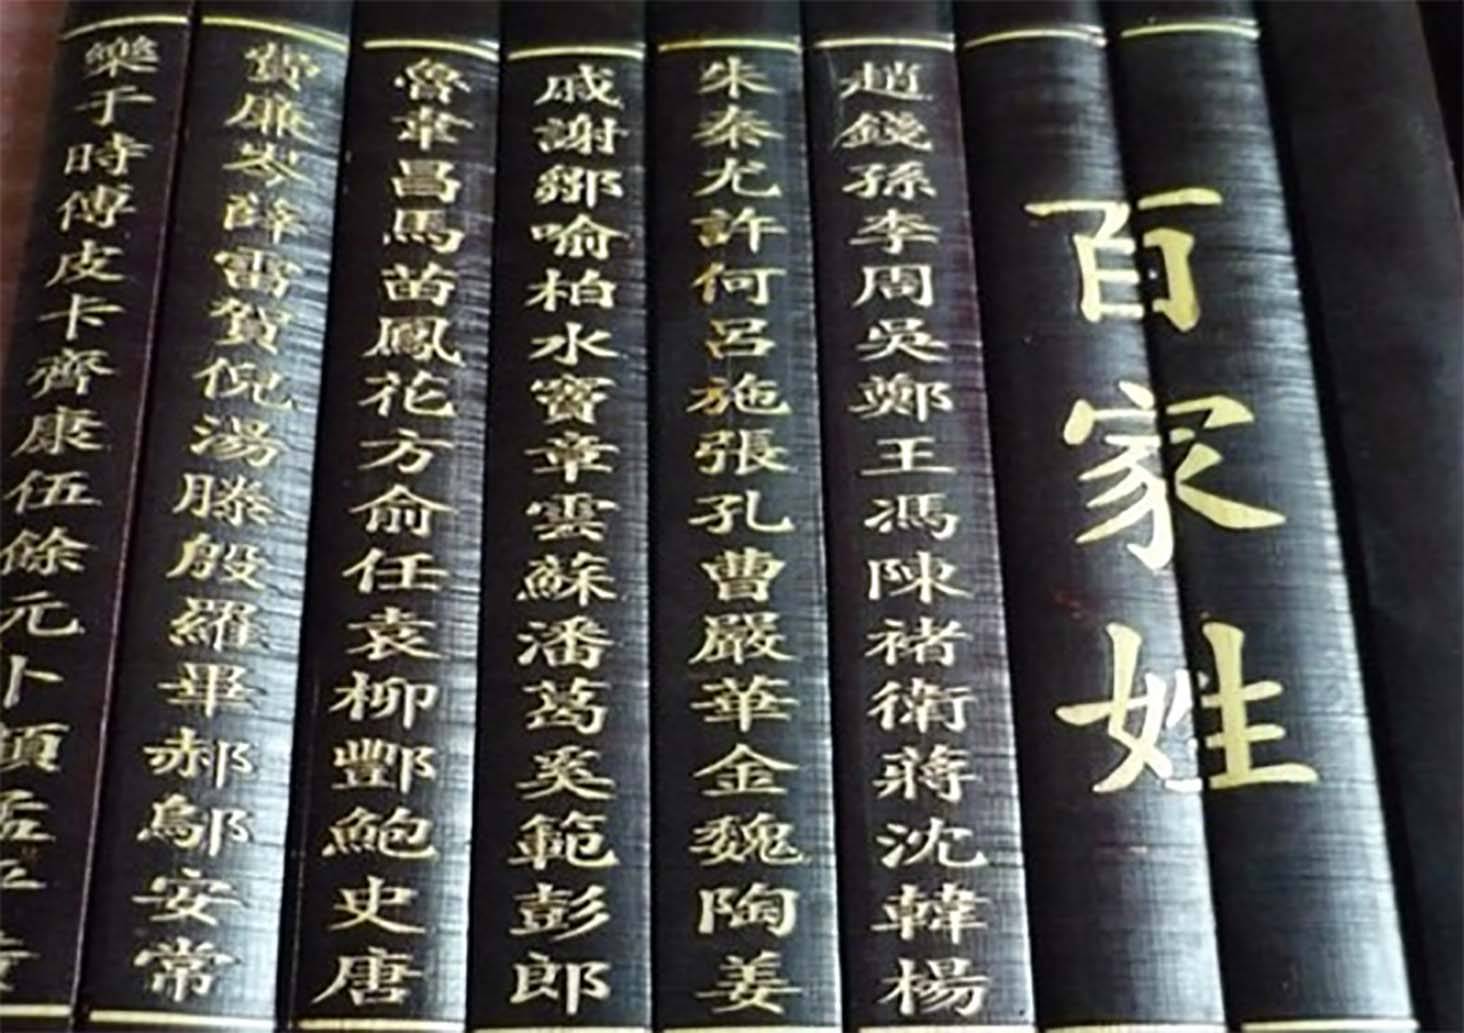 百家姓
趙錢孫李周吳鄭王馮陳褚衛蔣沈韓楊
朱秦尤許何呂施張孔曹嚴華金魏陶姜
戚謝鄒喻柏水竇章雲蘇潘葛奚範彭郎
魯韋昌馬苗鳳花方俞任袁柳酆鮑史唐
費廉岑薛雷賀倪湯滕殷羅畢郝鄔安常
樂于時傅皮卡齊康伍餘元卜